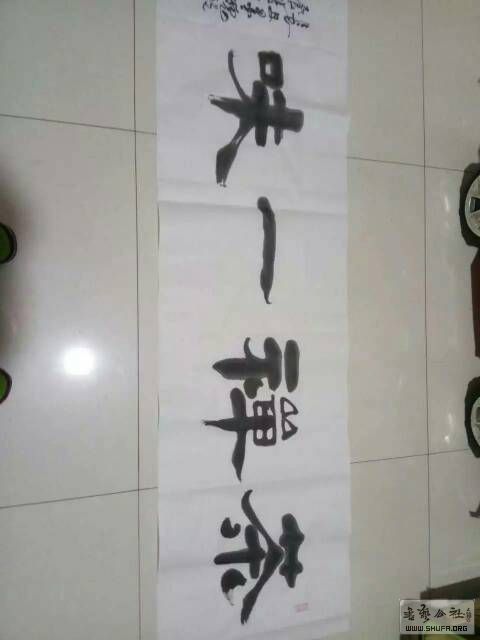 茶禪一味
书藝公社
WWW.SHUFA.ORG